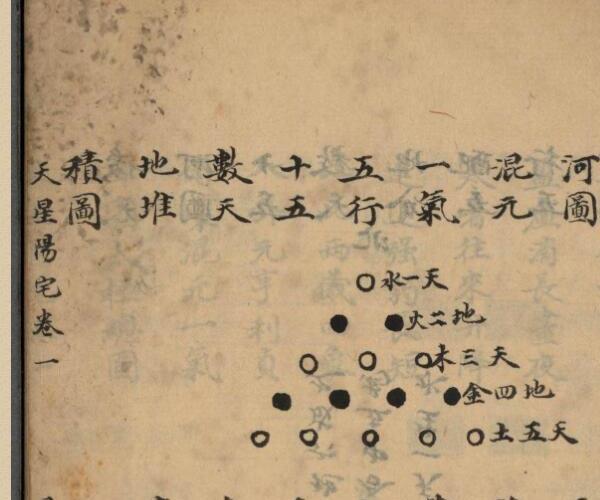 河圖
混元
一氣
五行
十五
數天
地堆
積圖
天一水
地二火
天三木
地四金
天五土
天星陽宅卷一